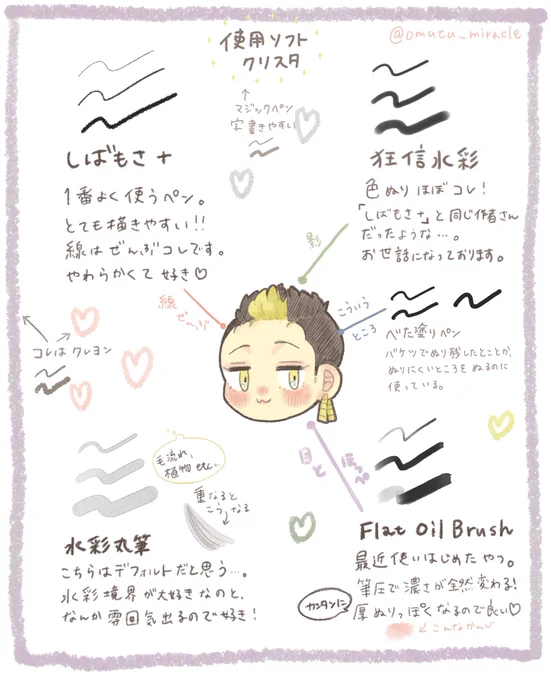 使用ソフト
クリスタ
@omutu_miracle
↑
マジックペン
字書きやすい
しばもさ+
1番よく使うペン。
とても描きやすい!!
線はぜんぶコレです。
やわらかくて好き♡
狂信水彩
色ぬりほぼコレ!
「しばもさ+」と同じ作者さん
だったような…。
お世話になっております。
影
線
ぜ〜んぶ
こういう
ところ
べた塗りペン
バケツでぬり残したとことか、
ぬりにくいところをぬるのに
使っている。
コレはクレヨン
毛流れ、
植物etc..
重なると
こうなる
水彩丸筆
こちらはデフォルトだと思う…。
水彩境界が大好きなのと、
なんか雰囲気出るので好き!
目と
ほっぺ
Flat Oil Brush
最近使いはじめたやつ。
筆圧で濃さが全然変わる!
カンタンに
厚ぬりっぽくなるので良い♡
←こんなかんじ